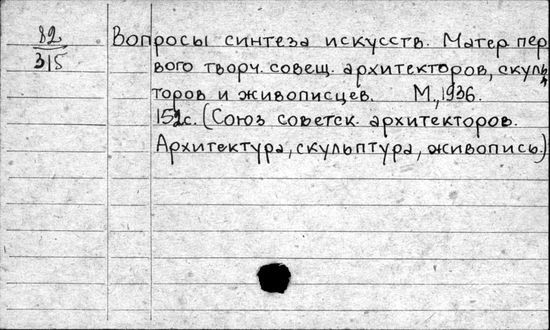 82
315
Вопросы синтеза искусств. Матер. пер
вого творч. совещ. архитекторов, скуль
торов и живописцев. М., 1936.
152с. (Союз советск. архитекторов.
Архитектура, скульптура, живопись.)